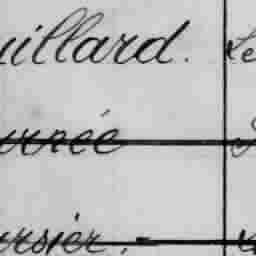 uillard. Le
urnée
ursier.-